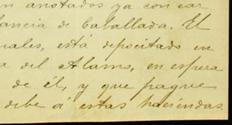 n anotados ya con car
tancia de Caballada. El
nales, está depositado en
a del Alamo, en espera
de él, y que pague
debe á estas haciendas